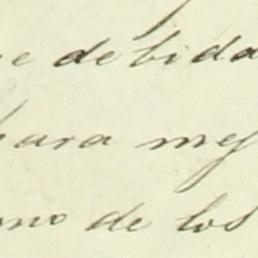 e debida
para mej
no de los